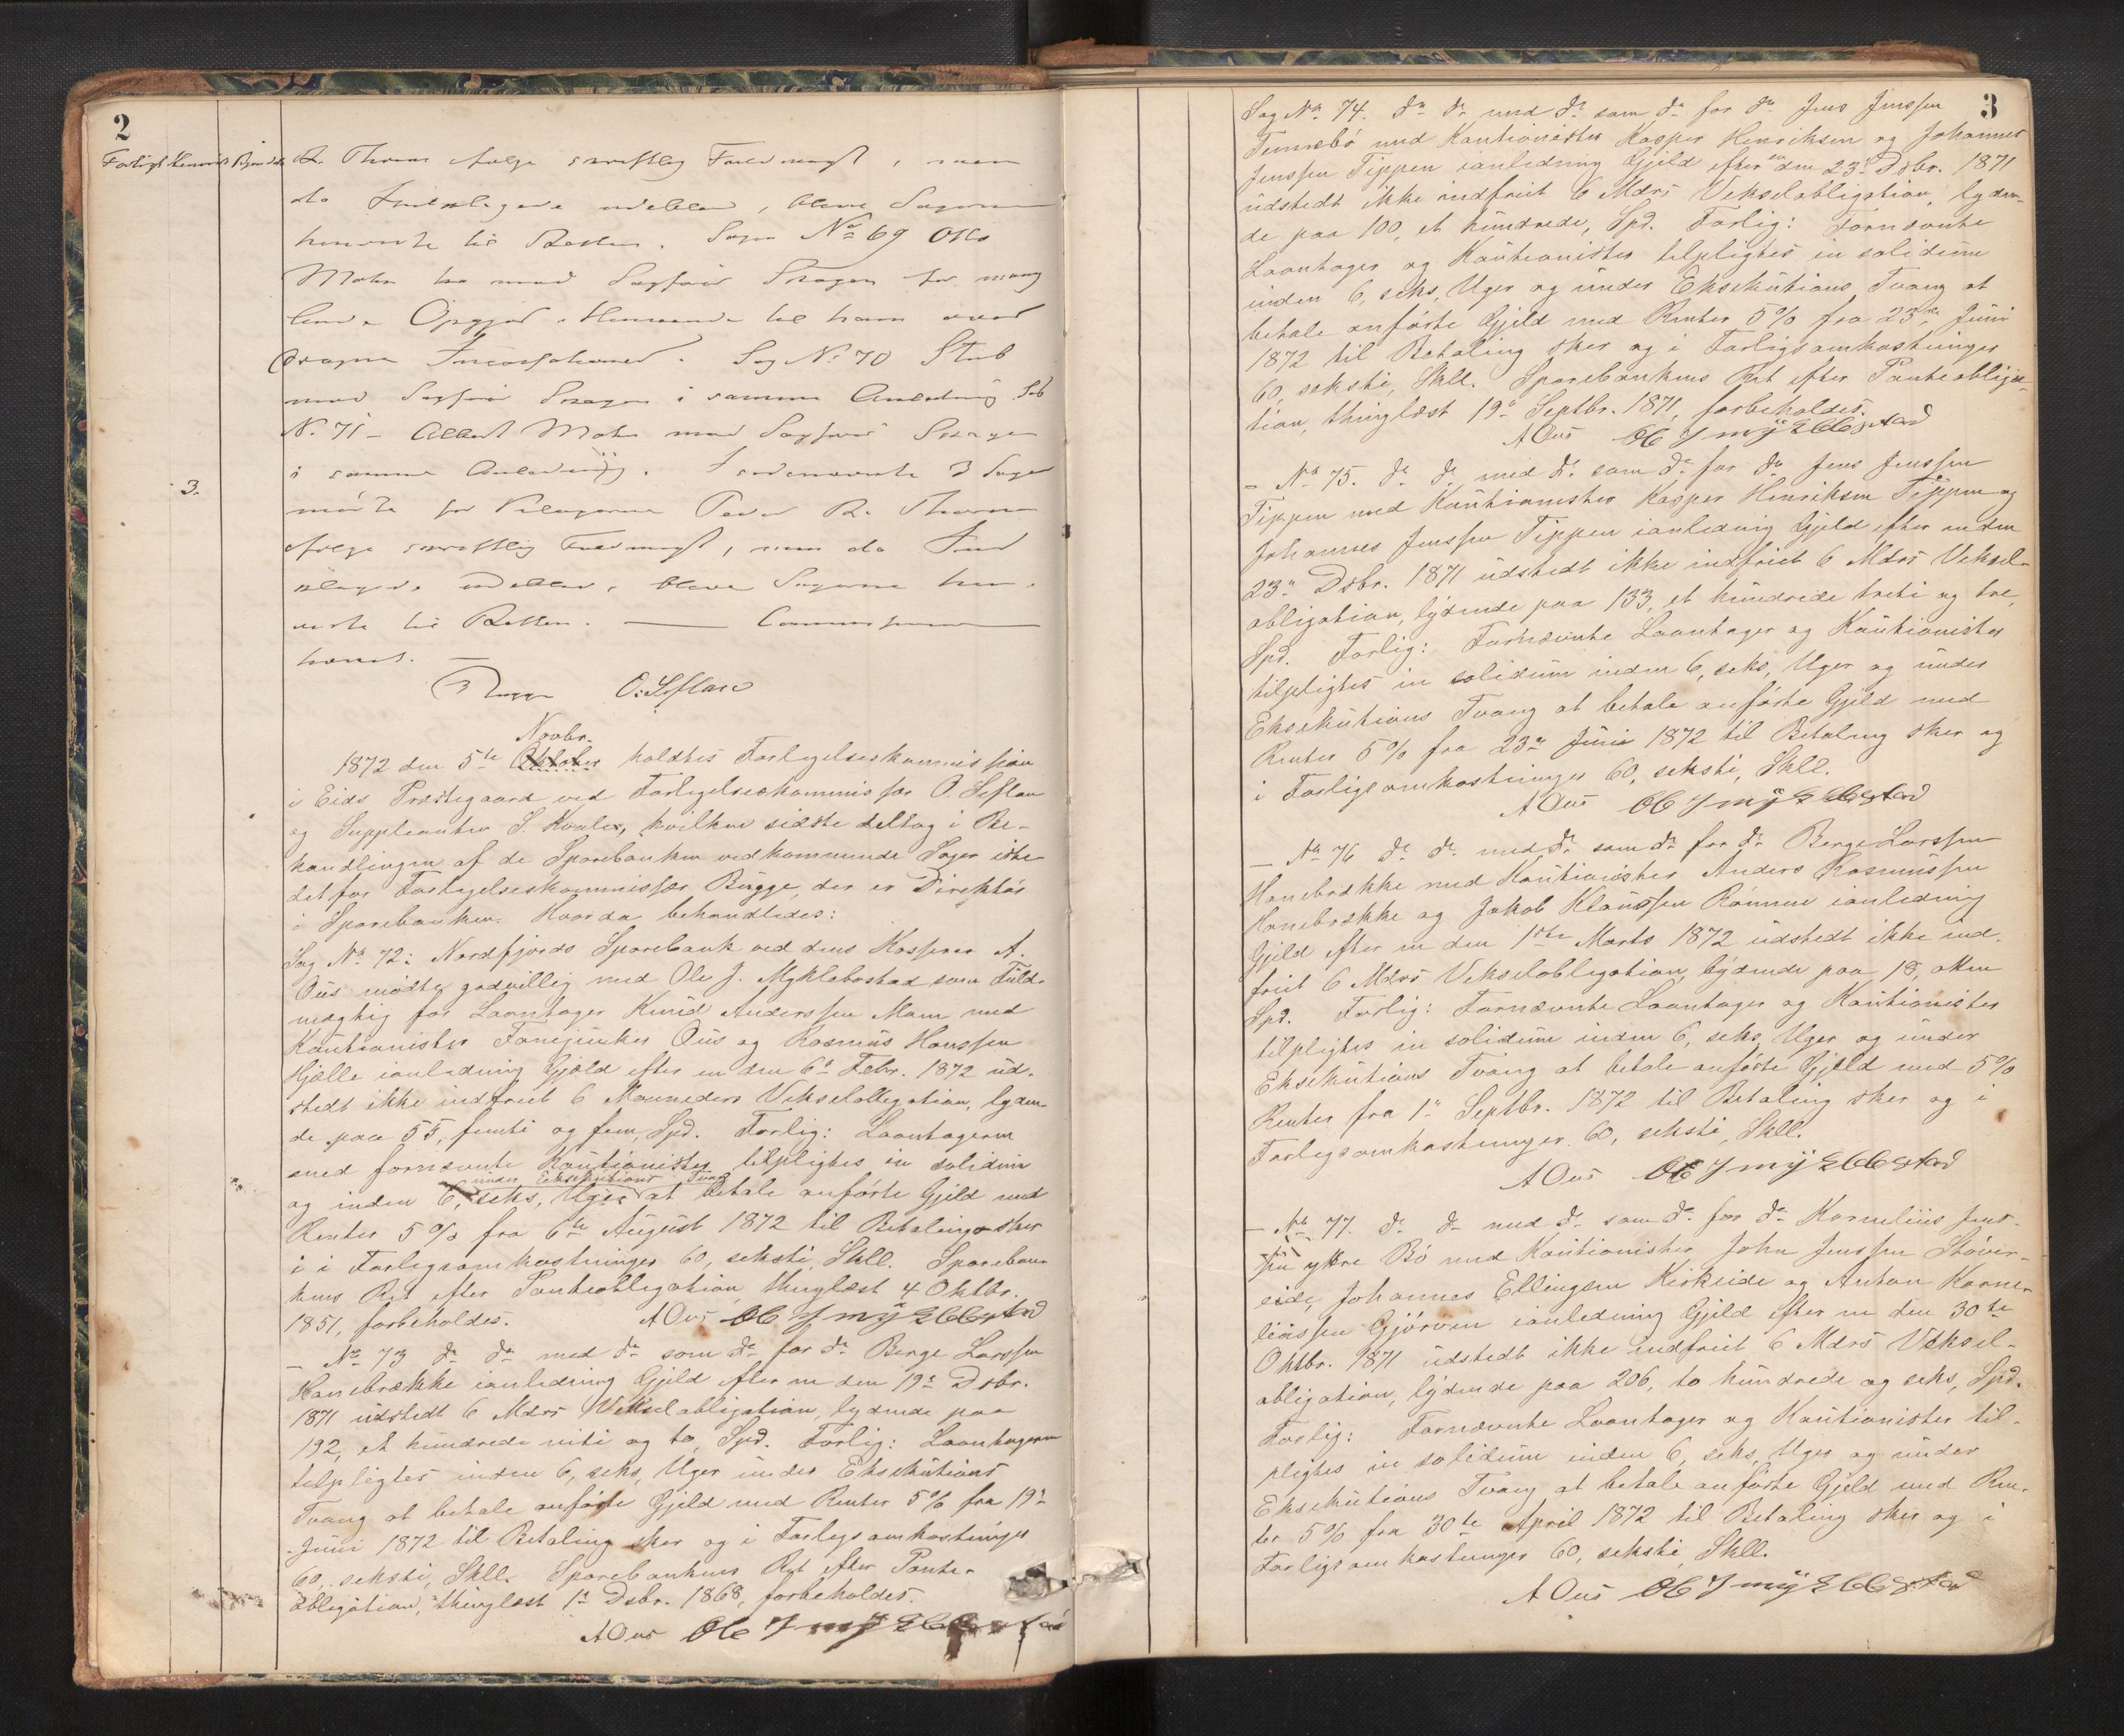 2
Forligt Henvist Bjord
R. Thorne ifølge skriftlig Fuldmagt, men
da Indklagede udeblev, bleve Sagerne
henviste til Retten. Sagen No 69 Otto
Mohn har mod Sagfører Sragen for mang
lende Opgjør
dragne Incassationer. Sag No 70 Stub
mod Sagfører Sragen i samme Anledning. Sag
No 71 - Albert Mohn mod Sagfører Sragen
i samme Anledning. I sidstnævnte 3 Sager
3.
mødte for Klagerne Peder R. Thorne
ifølge skriftlig Fuldmagt, men da Ind
klagede udeblev, bleve Sagerne hen-
viste til Retten. — Commissionen
hævet. —
Bugge O. Seflan
Novbr.
1872 den 5te Oktober holdtes Forligelseskommission
i Eids Præstegaard ved Forligelseskommissær O. Seflan
og Suppleanten S. Kvale, hvilken sidste deltog i Be-
handlingen af de Sparebanken vedkommende Sager iste-
detfor Forligelseskommissær Bugge, der er Direktør
i Sparebanken. Hvorda behandledes:
Sag No 72: Nordfjords Sparebank ved dens Kasserer A.
Ous mødte godvillig med Ole J. Myklebostad som Fuld-
mægtig for Laantager Knud Anderssen Mom med
Kautionister Fanejunker Ous og Rasmus Hanssen
Hjelle ianledning Gjæld efter en den 6te Febr. 1872 ud-
stedt ikke indfriet 6 Maaneders Vekselobligation, lyden-
de paa 55, femti og fem, Spd. Forlig: Laantageren
med fornævnte Kautionister tilpligtes in solidum
under Eksekutions Tvang
og inden 6, seks, Uger at betale anførte Gjeld med
Renter 5 % fra 6te August 1872 til Betaling sker
i i Forligsomkostninger 60, seksti, Skll. Spareban-
kens Ret efter Panteobligation, thinglæst 4 Oktbr.
1851, forbeholdes. AOus Ole J myklebostad
— No 73 do do med do som do for do Berge Larssen
Hanebrække ianledning Gjeld efter en den 19de Dsbr.
1871 udstedt 6 Mdrs Vekselobligation, lydende paa
192, et hundrede niti og to, Spd. Forlig: Laantageren
tilpligtes inden 6, seks, Uger under Eksekutions
Tvang at betale anførte Gjeld med Renter 5 % fra 19de
Juni 1872 til Betaling sker og i Forligsomkostninger
60, seksti, Skll. Sparebankens Ret efter Pante-
obligation, thinglæst 1ste Dsbr. 1868, forbeholdes.
AOus Ole J myklebostad
3
Sag No 74. do do med do som do for do Jens Jenssen
Tunnebø med Kautionister Kasper Henriksen og Johannes
Jenssen Tippen ianledning Gjeld efter en den 23de Dsbr. 1871
udstedt ikke indfriet 6 Mdrs Vekselobligation, lyden-
de paa 100, et hundrede, Spd. Forlig: Fornævnte
Laantager og Kautionister tilpligtes in solidum
inden 6, seks, Uger og under Eksekutions Tvang at
betale anførte Gjeld med Renter 5 % fra 23de Juni
1872 til Betaling sker og i Forligsomkostninger
60, seksti, Skll. Sparebankens Ret efter Panteobliga-
tion, thinglæst 19de Septbr. 1871, forbeholdes.
AOus Ole J myklebostad
— No 75. do do med do som do for do Jens Jenssen
Tippen med Kautionister Kasper Henriksen Tippen og
Johannes Jenssen Tippen ianledning Gjeld efter en den
23de Dsbr. 1871 udstedt ikke indfriet 6 Mdrs Veksel-
obligation, lydende paa 133, et hundrede treti og tre,
Spd. Forlig: Fornævnte Laantager og Kautionister
tilpligtes in solidum inden 6, seks, Uger og under
Eksekutions Tvang at betale anførte Gjeld med
Renter 5 % fra 23de Juni 1872 til Betaling sker og
i Forligsomkostninger 60, seksti, Skll.
AOus Ole J myklebostad
— No 76 do do med do som do for do Berge Larssen
Hanebrække med Kautionister Anders Rasmussen
Hanebrække og Jakob Klaussen Rømme ianledning
Gjeld efter en den 1ste Marts 1872 udstedt ikke ind-
friet 6 Mdrs Vekselobligation, lydende paa 18, atten
Spd. Forlig: Fornævnte Laantager og Kautionister
tilpligtes in solidum inden 6, seks, Uger og under
Eksekutions Tvang at betale anførte Gjeld med 5 %
Renter fra 1ste Septbr. 1872 til Betaling sker og i
Forligsomkostninger 60, seksti, Skll.
AOus Ole J myklebostad
— No 77. do do med do som do for do Kornelius Jens-
sen ytre Bø med Kautionister John Jenssen Støver-
eide, Johannes Ellingsen Kirkeide og Anton Korne-
liussen Gjørven ianledning Gjeld efter en den 30te
Oktbr. 1871 udstedt ikke indfriet 6 Mdrs Veksel-
obligation, lydende paa 206, to hundrede og seks, Spd.
Forlig: Fornævnte Laantager og Kautionister til-
pligtes in solidum inden 6, seks, Uger og under
Eksekutions Tvang at betale anførte Gjeld med Ren-
ter 5 % fra 30te April 1872 til Betaling sker og i
Forligsomkostninger 60, seksti, Skll.
AOus Ole J myklebostad